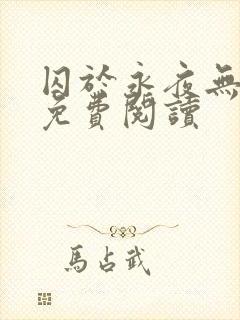 囚於永夜無
免費閱讀
馬占武